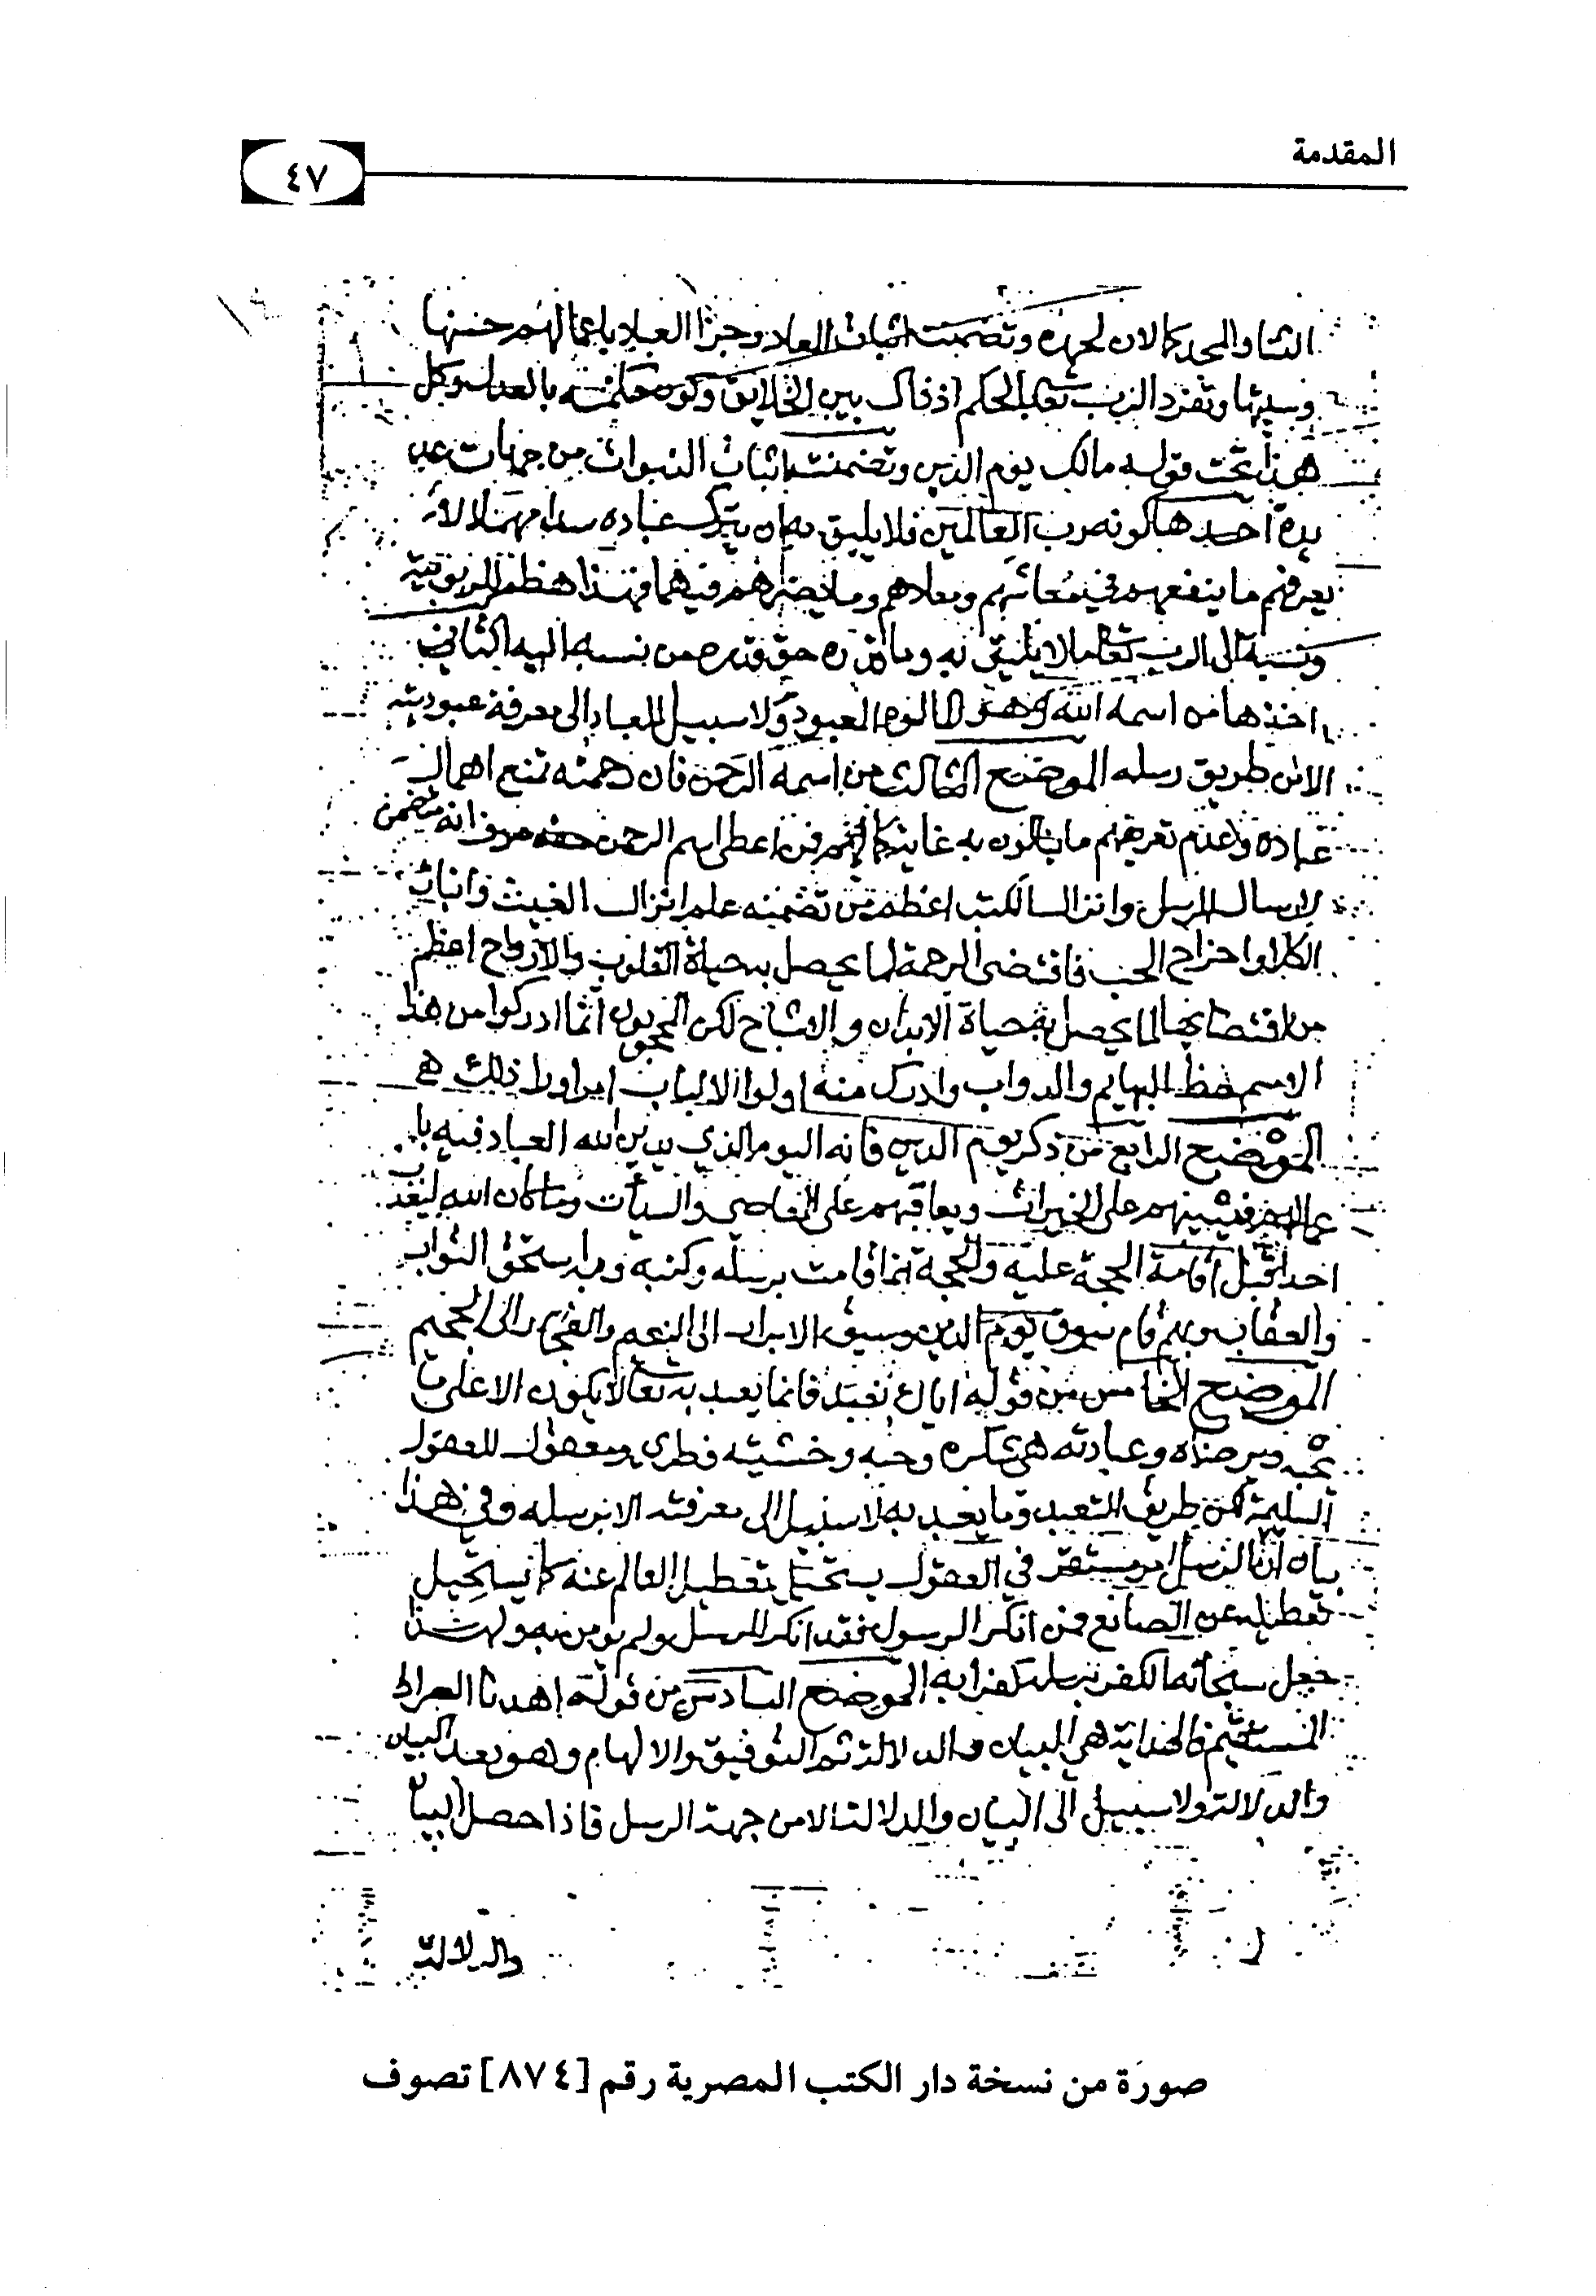 المقدمة
٤٧
الثنا والمجد كمالان لحمده وتضمنت اثبات المعاد وجزا العباد باعمالهم حسنها
وسيئها وتفرد الرب تعالى بالحكم اذ ذاك بين الخلايق وكون حكمه بالعدل وكل
هذا تحت قوله مالك يوم الدين وتضمنت اثبات النبوات من جهات عديدة
احدها كونه رب العالمين فلا يليق به ان يترك عباده سدا مهملا لا
يعرفهم ما ينفعهم في معاشهم ومعادهم وما يضرهم فيهما فهذا هظم للربوبية
ونسبة الى الرب تعالى ما لا يليق به وما قدره حق قدره من نسبه اليه الثاني
اخذها من اسمه الله وهو المالوه المعبود ولا سبيل للعباد الى معرفة عبوديته
الا من طريق رسله الموضع الثالث من اسمه الرحمن فان رحمته تمنع اهمال
عباده وعدم تعريفهم ما ينالون به غاية كمالهم فمن اعطى اسم الرحمن حقه عرف انه متضمن
لارسال الرسل وانزال الكتب اعظم من تضمنه علم انزال الغيث وانبات
الكلا واخراج الحب فاقتضى الرحمة لما يحصل به حياة القلوب والارواح اعظم
من اقتضايها لما يحصل به حياة الابدان والاشباح لكن المحجوبون انما ادركوا من هذا
الاسم حظ البهايم والدواب وادرك منه اولوا الالباب امرا ورا ذلك
الموضع الرابع من ذكر يوم الدين فانه اليوم الذي يدين الله العباد فيه با
عمالهم فيثيبهم على الخيرات ويعاقبهم على المعاصي والسيأت وما كان الله ليعذب
احدا قبل اقامة الحجة عليه والحجة انما قامت برسله وكتبه وبهم استحق الثواب
والعقاب وبهم قام سوق يوم الدين وسيق الابرار الى النعيم والفجار الى الجحيم
الموضع الخامس من قوله اياك نعبد فانما يعبد به تعالى لا يكون الا على ما
يحبه ويرضاه وعبادته هي شكره وحبه وخشيته فطري ومعقول للعقول
السليمة لكن طريق التعبد وما يعبد به لا سبيل الى معرفته الا برسله وفي هذا
بيان ان الرسل امر مستقر في العقول يستحيل تعطيل العالم عنه كما يستحيل
تعطيله عن الصانع فمن انكر الرسول فقد انكر المرسل ولم يومن به ولهذا
جعل سبحانه الكفر برسله كفرا به الموضع السادس من قوله اهدنا الصراط
المستقيم فالهداية هي البيان والدلالة ثم التوفيق والالهام وهو بعد البيان
والدلالة ولا سبيل الى البيان والدلالة الا من جهة الرسل فاذا حصل البيا
والدلالة
صورة من نسخة دار الكتب المصرية رقم [٨٧٤] تصوف